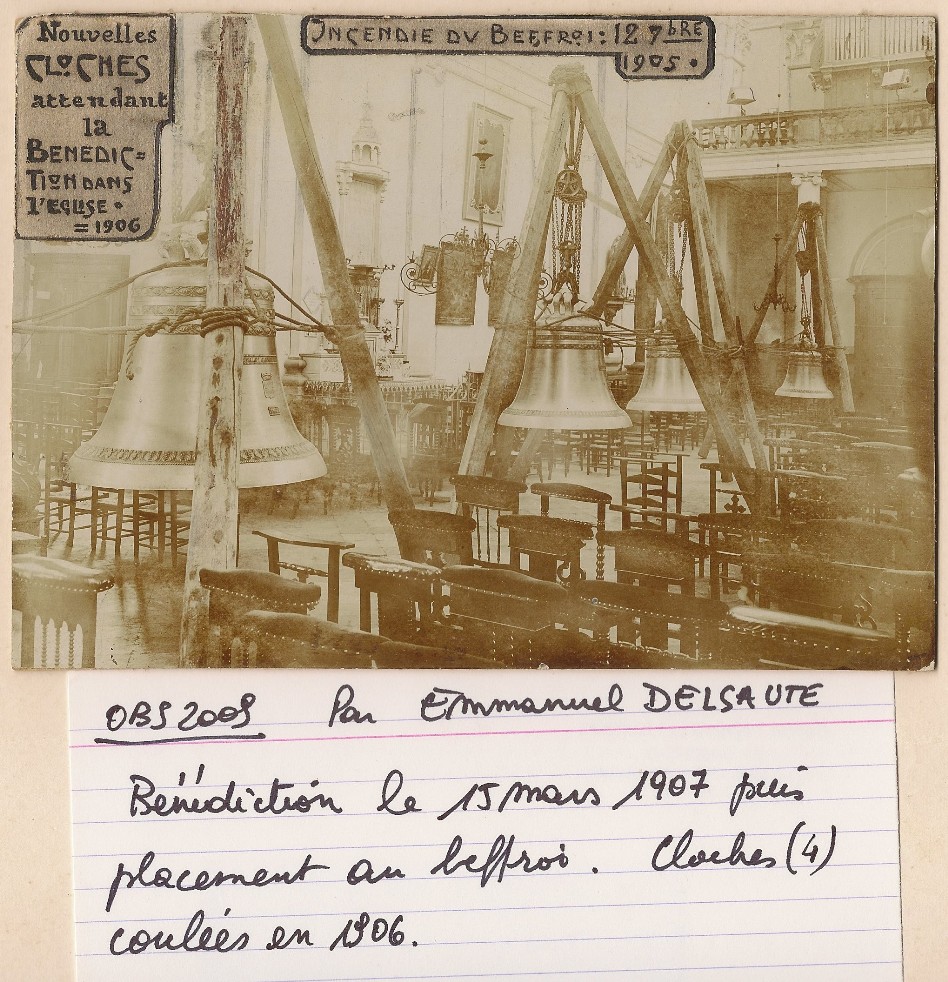 Nouvelles
CLOCHES
attendant
la
BENEDIC=
TION DANS
l'EGLISE •
= 1906
INCENDIE DU BEFFROI: 12 7bRE
1905 •
OBS 2009 Par Emmanuel DELSAUTE
Bénédiction le 15 mars 1907 puis
placement au beffroi. Cloches (4)
coulées en 1906.